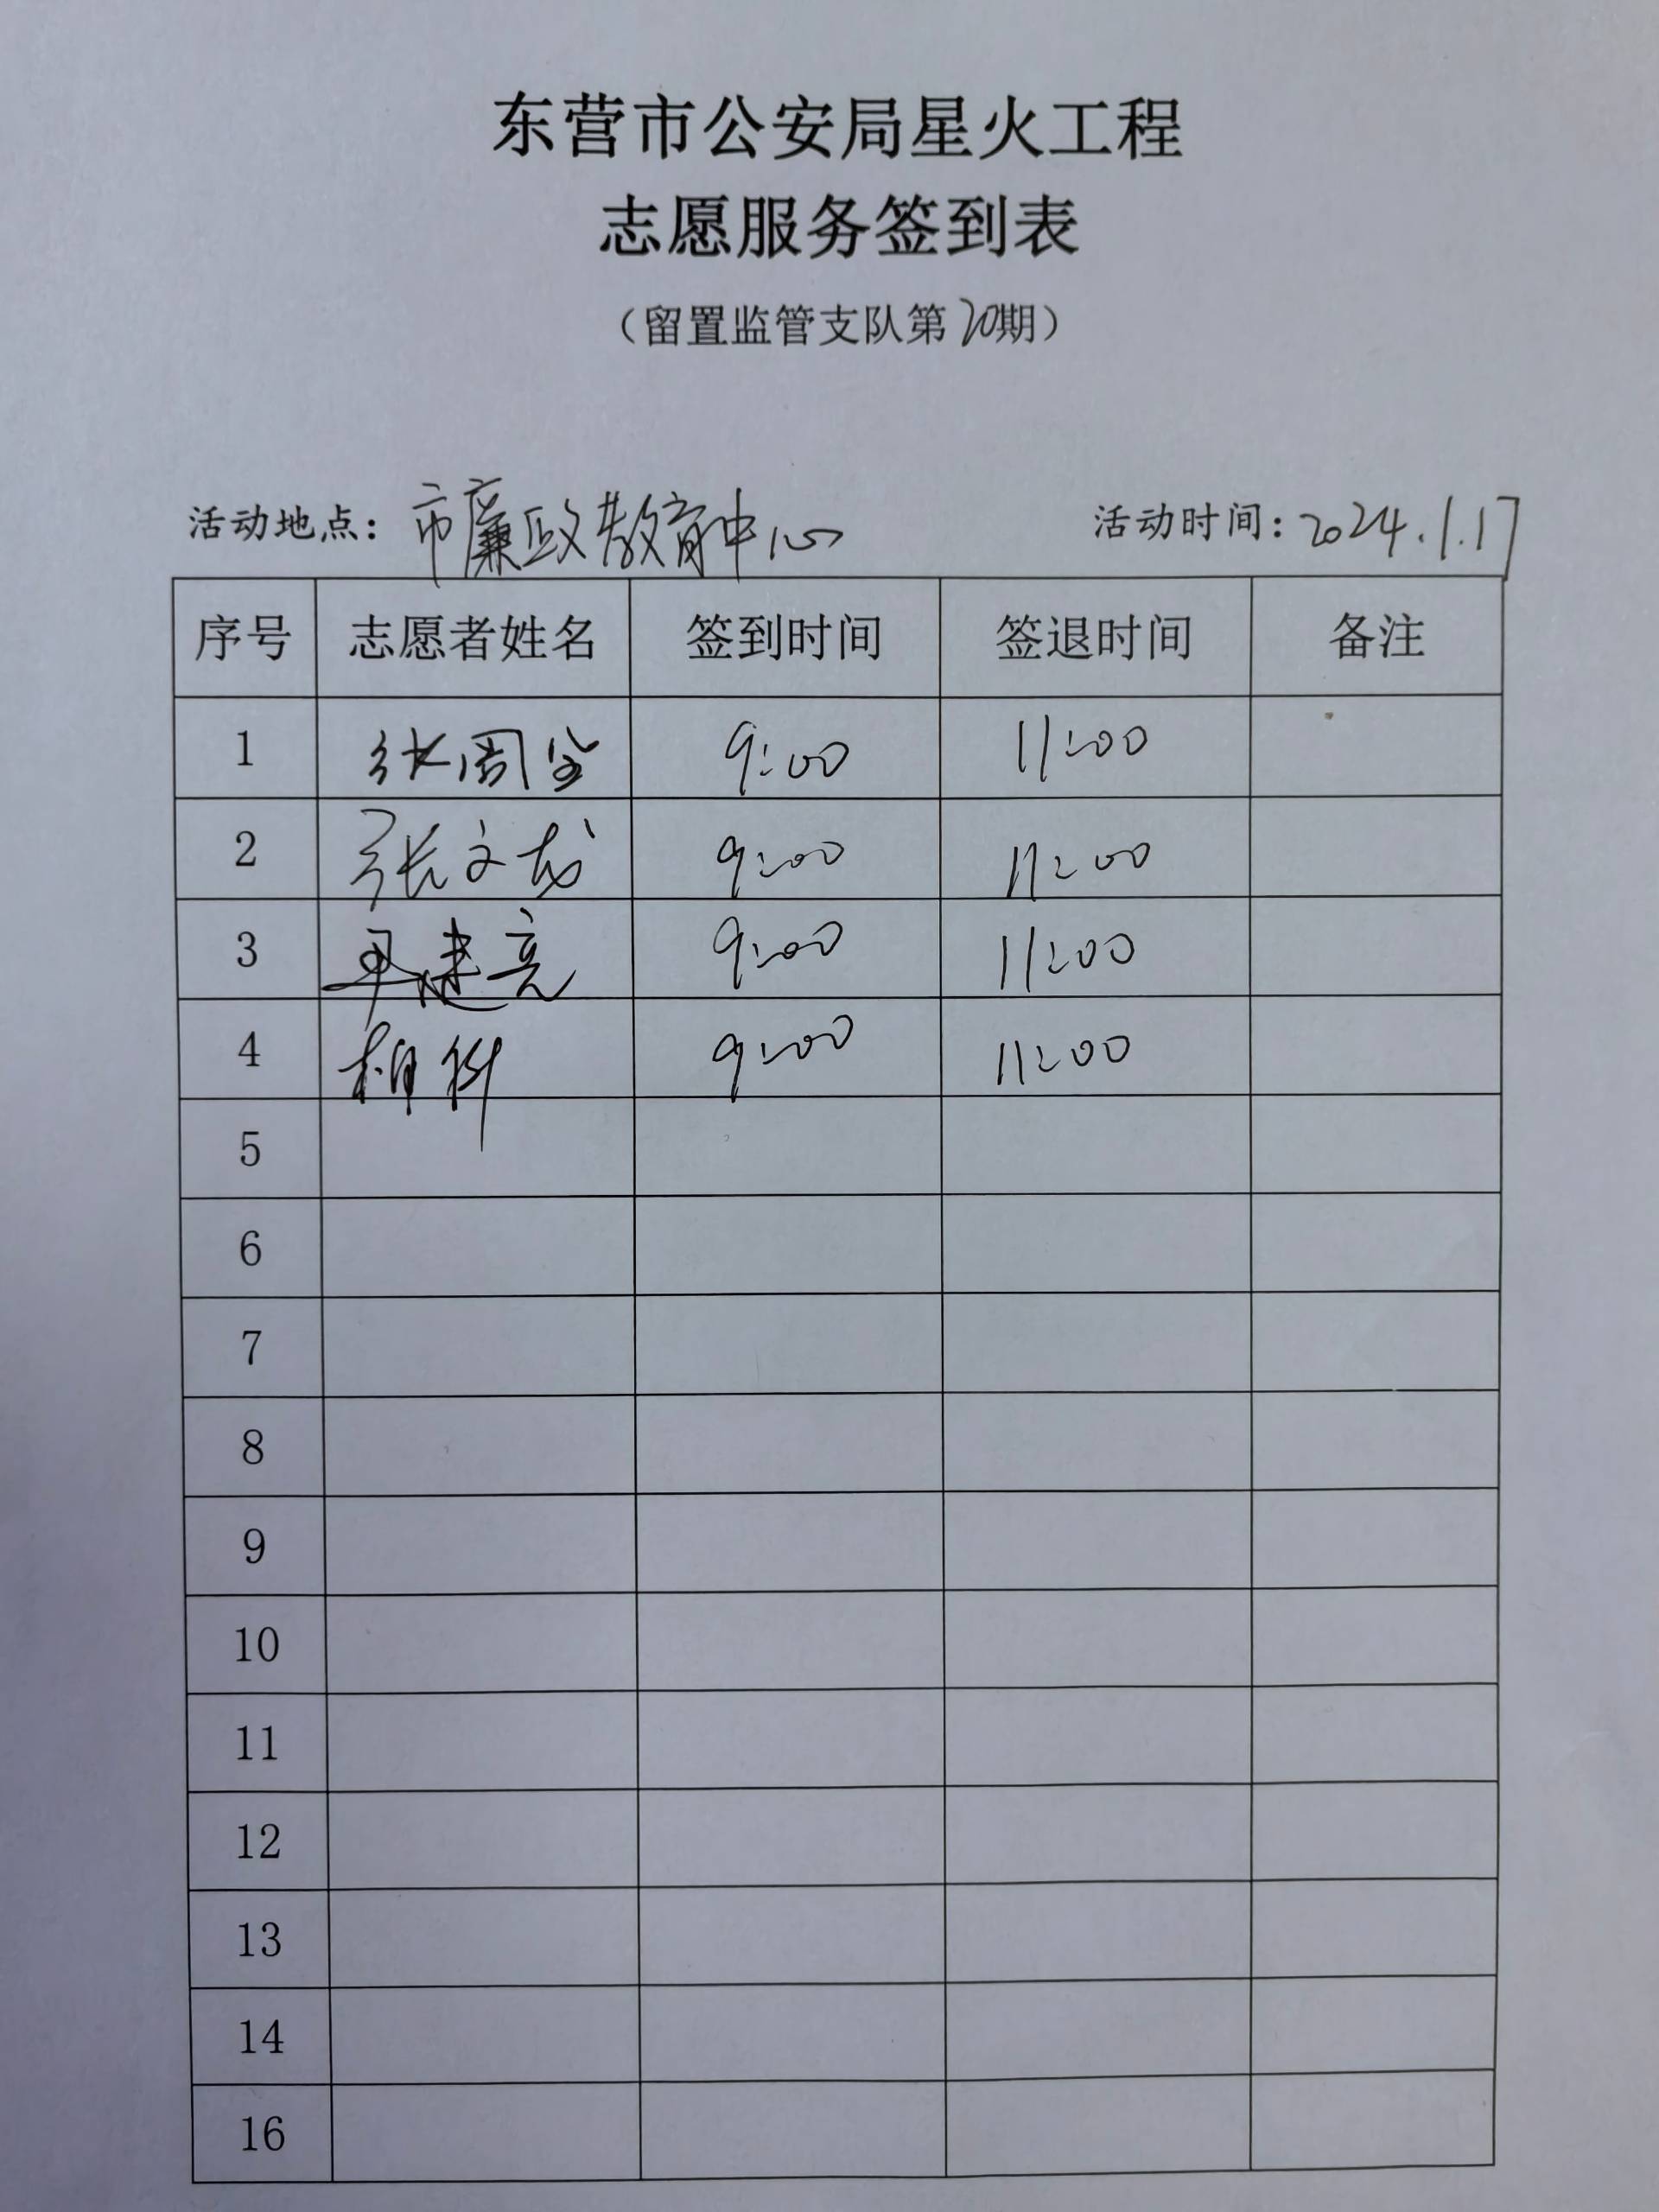 东营市公安局星火工程
志愿服务签到表
（留置监管支队第20期）
活动地点：市廉政教育中心 活动时间：2024.1.17
序号 志愿者姓名 签到时间 签退时间 备注
1 张周全 9:00 11:00
2 张文龙 9:00 11:00
3 建亮 9:00 11:00
4 9:00 11:00
5
6
7
8
9
10
11
12
13
14
16